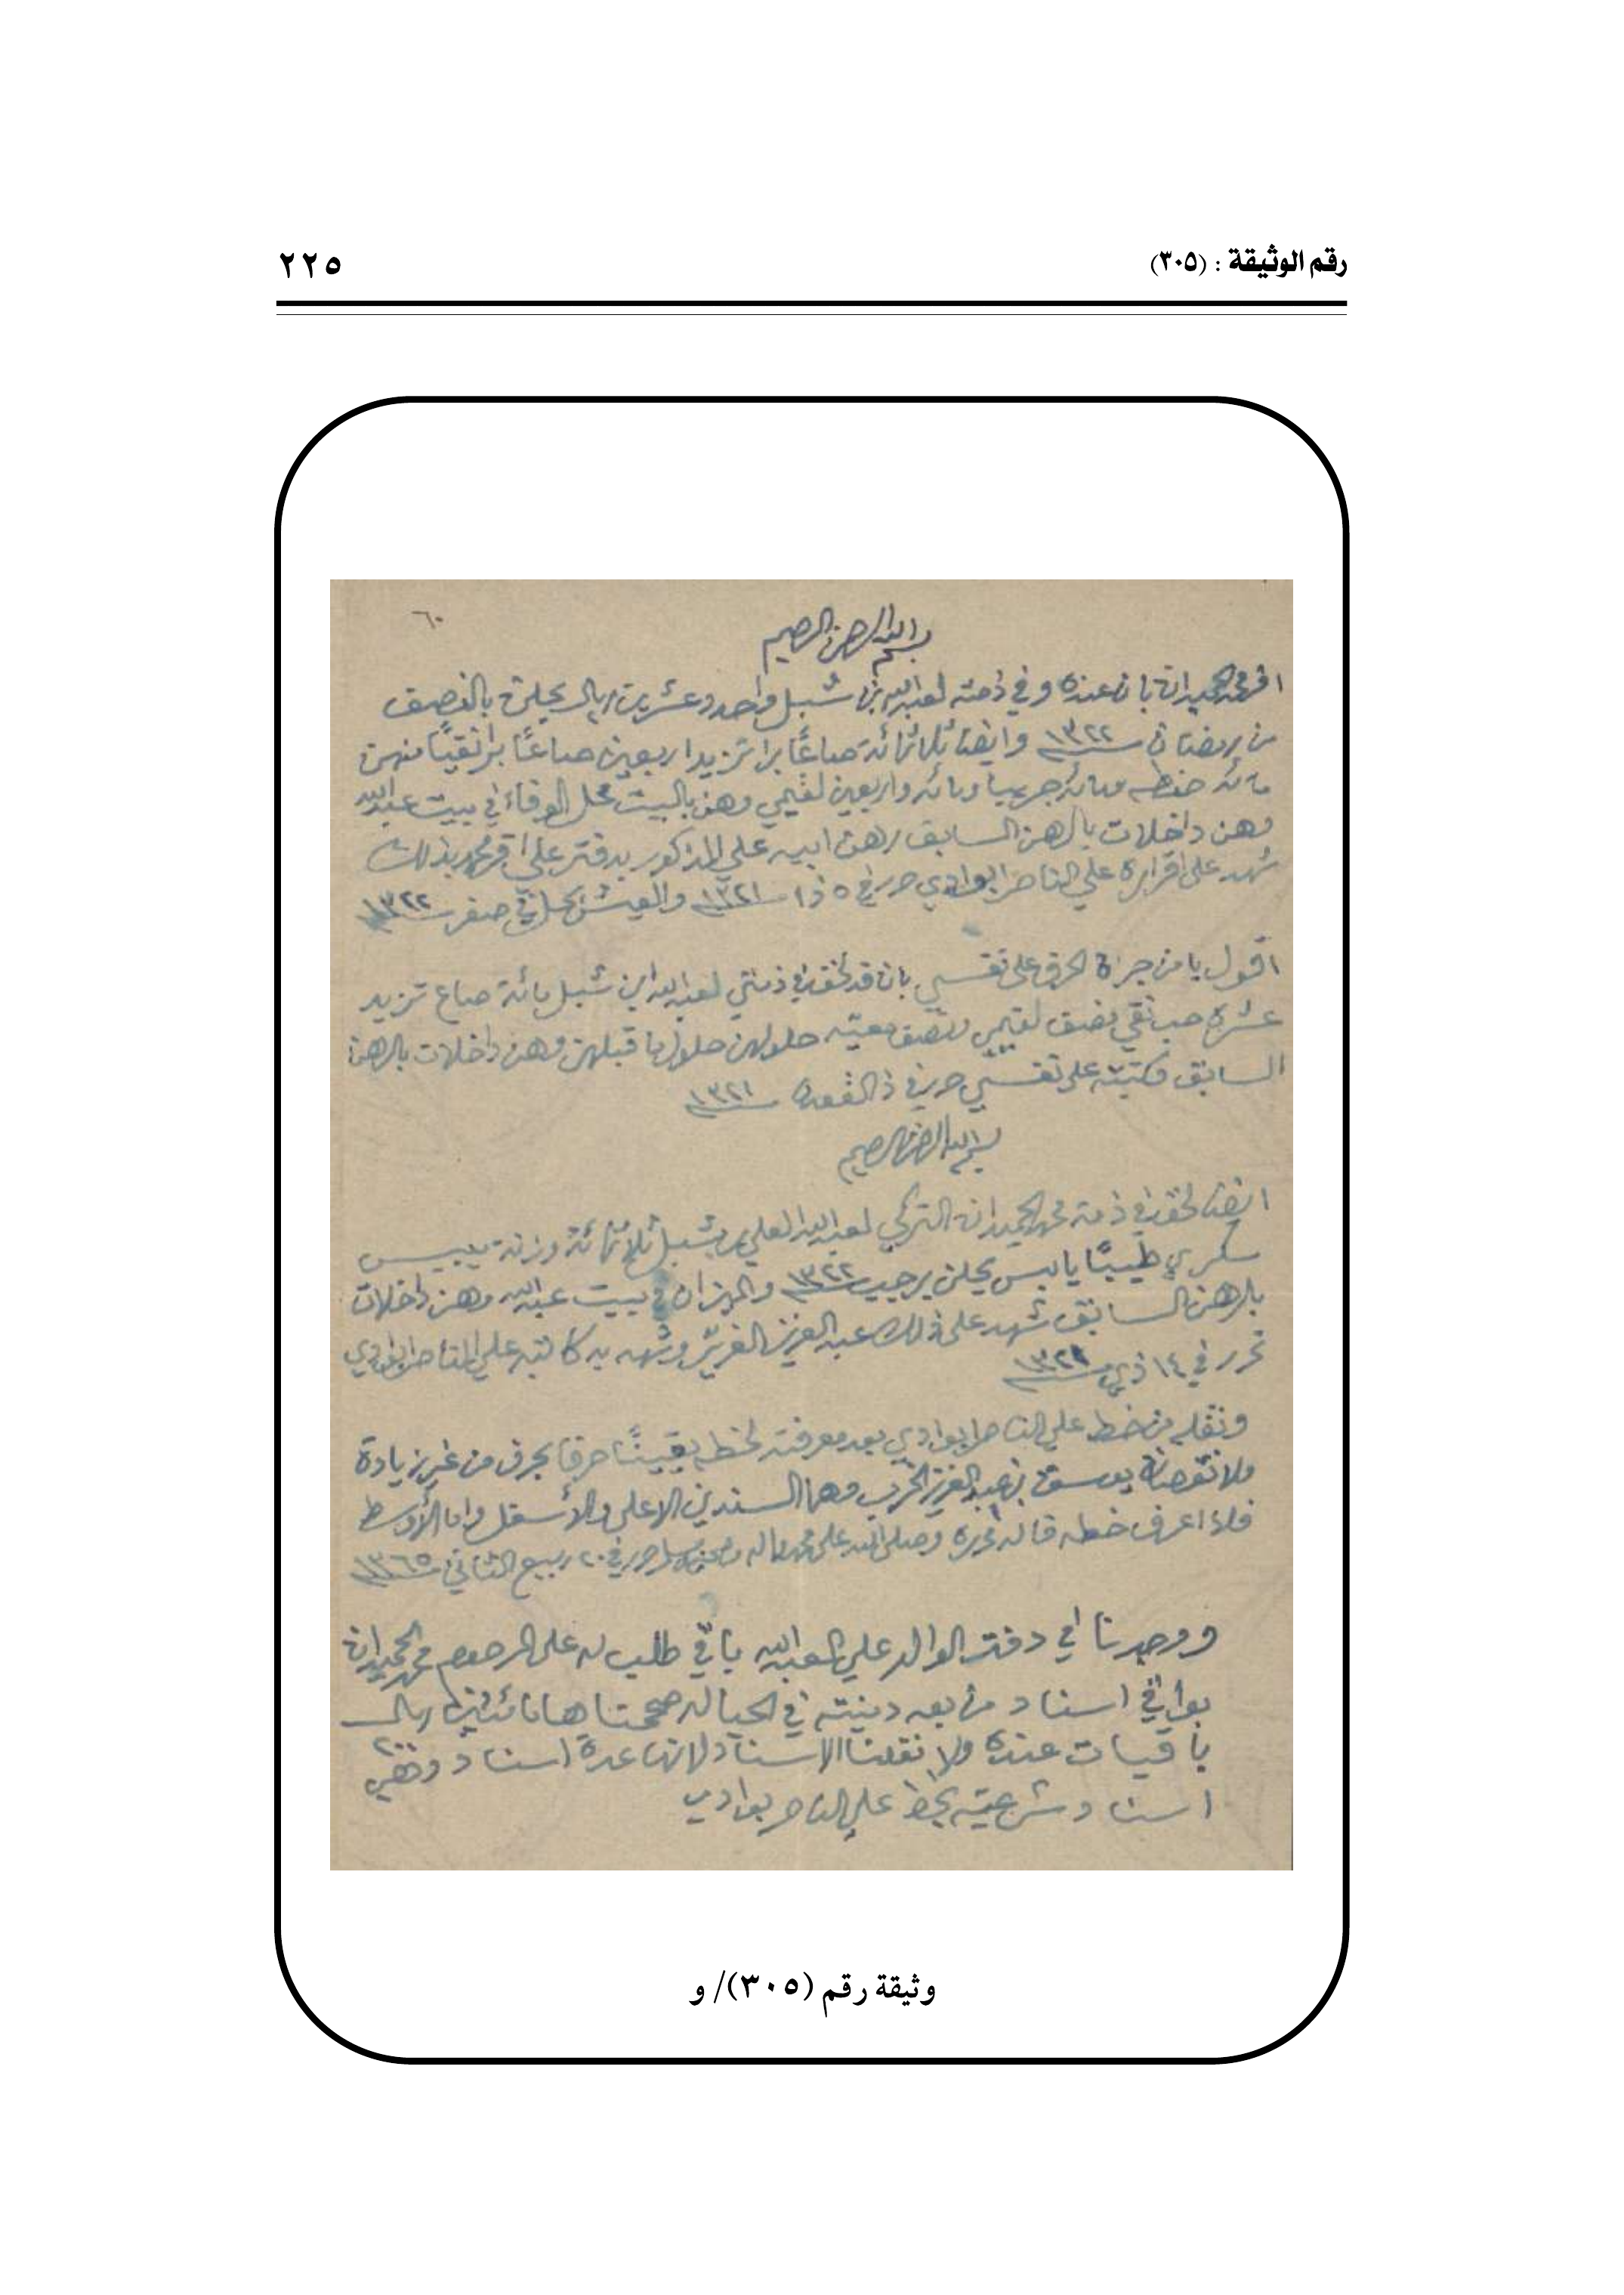 رقم الوثيقة : (٣٠٥)
٢٢٥
٦٠
بسم الله الرحمن الرحيم
اقر محمد الحميدانة بان عنده وفي ذمته لعبدالله بن شبل واحد وعشرين ريال يحلن بالنصف
من رمضان ١٣٢٢ وايضا ثلاثمائة صاعًا برا تزيد اربعين صاعًا برا نقيًا منهن
مائة حنطه ومائة جريبا ومائه واربعين لقيمي وهن بالبيت محل الوفاء في بيت عبدالله
وهن داخلات بالرهن السابق رهن ابيه علي المذكور بدفتر علي اقر محمد بذلك
شهد على اقراره علي الناصر البوادي حرر في ٥ ذا ١٣٢١ والعيش يحل في صفر ١٣٢٢
اقول يا من جراة الحرق على نفسي بان قد لحق في ذمتي لعبدالله ابن شبل مائة صاع تزيد
عشرة حب نقي نصف لقيمي ونصف معيه حلولهن حلول ما قبلهن وهن داخلات بالرهن
السابق وكتبته على نفسي حرر في ذا القعدة ١٣٢١
بسم الله الرحمن الرحيم
ايضا لحق في ذمة محمد الحميدانة التركي لعبدالله العلي بن شبل ثلاثمائة وزنة يبيس
سكري طيبًا يابس يحلن برجب ١٣٢٢ والميزان في بيت عبدالله وهن داخلات
بالرهن السابق شهد على ذلك عبدالعزيز الفريّر وشهد به كاتبه علي الناصر البوادي
تحرر في ١٤ ذي
ونقله من خط علي الناصر بوادي بعد معرفته لخطه يقينًا حرفا بحرف من غير زيادة
ولا نقصان يوسف بن عبدالعزيز الخرب وهما السندين الاعلى والأسفل واما الأوسط
فلا اعرف خطه قاله محرره وصلى الله على محمد واله وصحبه وسلم حرر في ٢٠ ربيع الثاني ١٣٦٥
ووجدنا في دفتر الوالد علي العبدالله باقي طلب له على المرحوم محمد الحميدانة
بواقي اسناد من بعد دينته في الحياله صححناها مائتين ريال
باقيات عنده ولا نقلنا الاسناد لانها عدة اسناد وهي
٢٠٠
اسناد شرعيه بخط علي الناصر بوادي
وثيقة رقم (٣٠٥)/ و